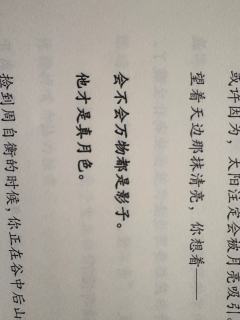 或许因为，太阳注定会被月亮吸引。
望着天边那抹清亮，你想着——
会不会万物都是影子。
他才是真月色。
捡到周自衡的时候，你正在谷中后山